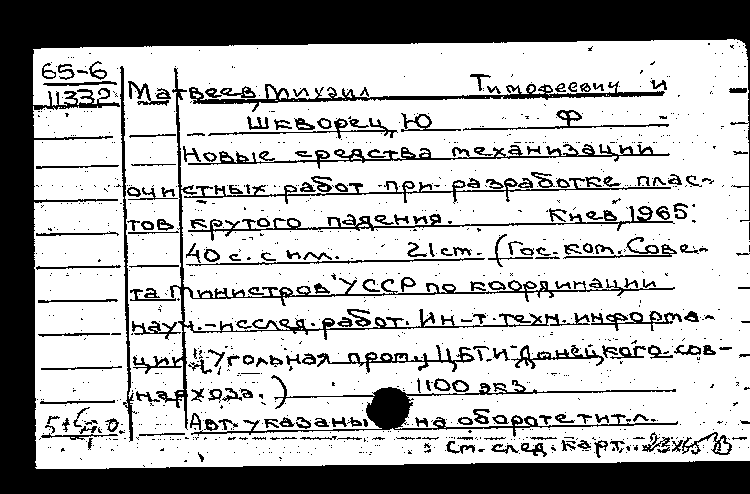 65-6
11332 Матвеев, Михаил Тимофеевич и
Шкворец, Ю Ф
Новые средства механизации
очистных работ при разработке плас-
тов крутого падения. Киев, 1965.
40 с. с илл. 21 см. (Гос. ком. Сове-
та Министров УССР по координации
науч.-исслед. работ. Ин-т техн. информа-
ции. "Угольная пром." ЦБТИ Донецкого сов-
нархоза.) 1100 экз.
Авт. указаны на обороте тит. л.
см. след. карт.